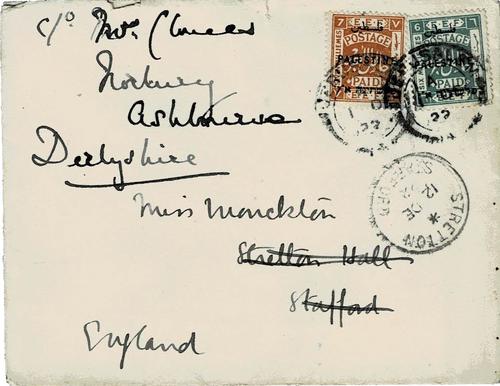 c/o Mrs Clowes
Norbury
Ashbourne
Derbyshire
Miss Monckton
Stretton Hall
Stafford
England
7 E.E.F. ٧
POSTAGE
PALESTINE
PAID
6 E.E.F. ٦
POSTAGE
PALESTINE
PAID
JERUSALEM
22
STRETTON
STAFFORD
12 DE